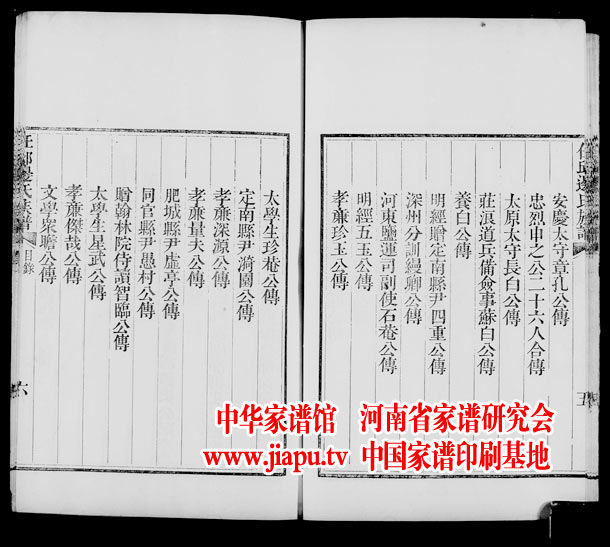 任邱邊氏族譜
五
安慶太守章孔公傳
忠烈申之公二十六人合傳
太原太守長白公傳
莊浪道兵備僉事蘇白公傳
養白公傳
明經贈定南縣尹四重公傳
深州分訓縵卿公傳
河東鹽運司副使石菴公傳
明經五玉公傳
孝廉珍玉公傳
太學生珍菴公傳
定南縣尹漪園公傳
孝廉深源公傳
孝廉量夫公傳
肥城縣尹虛亭公傳
同官縣尹愚村公傳
贈翰林院侍讀智臨公傳
太學生星武公傳
孝廉傑哉公傳
文學衆瞻公傳
任邱邊氏族譜
目錄
六
中华家谱馆 河南省家谱研究会
www.jiapu.tv 中国家谱印刷基地